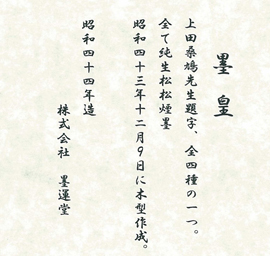 墨皇
上田桑鳩先生題字、全四種の一つ。
全て純生松松煙墨
昭和四十三年十二月9日に木型作成。
昭和四十四年造
株式会社 墨運堂